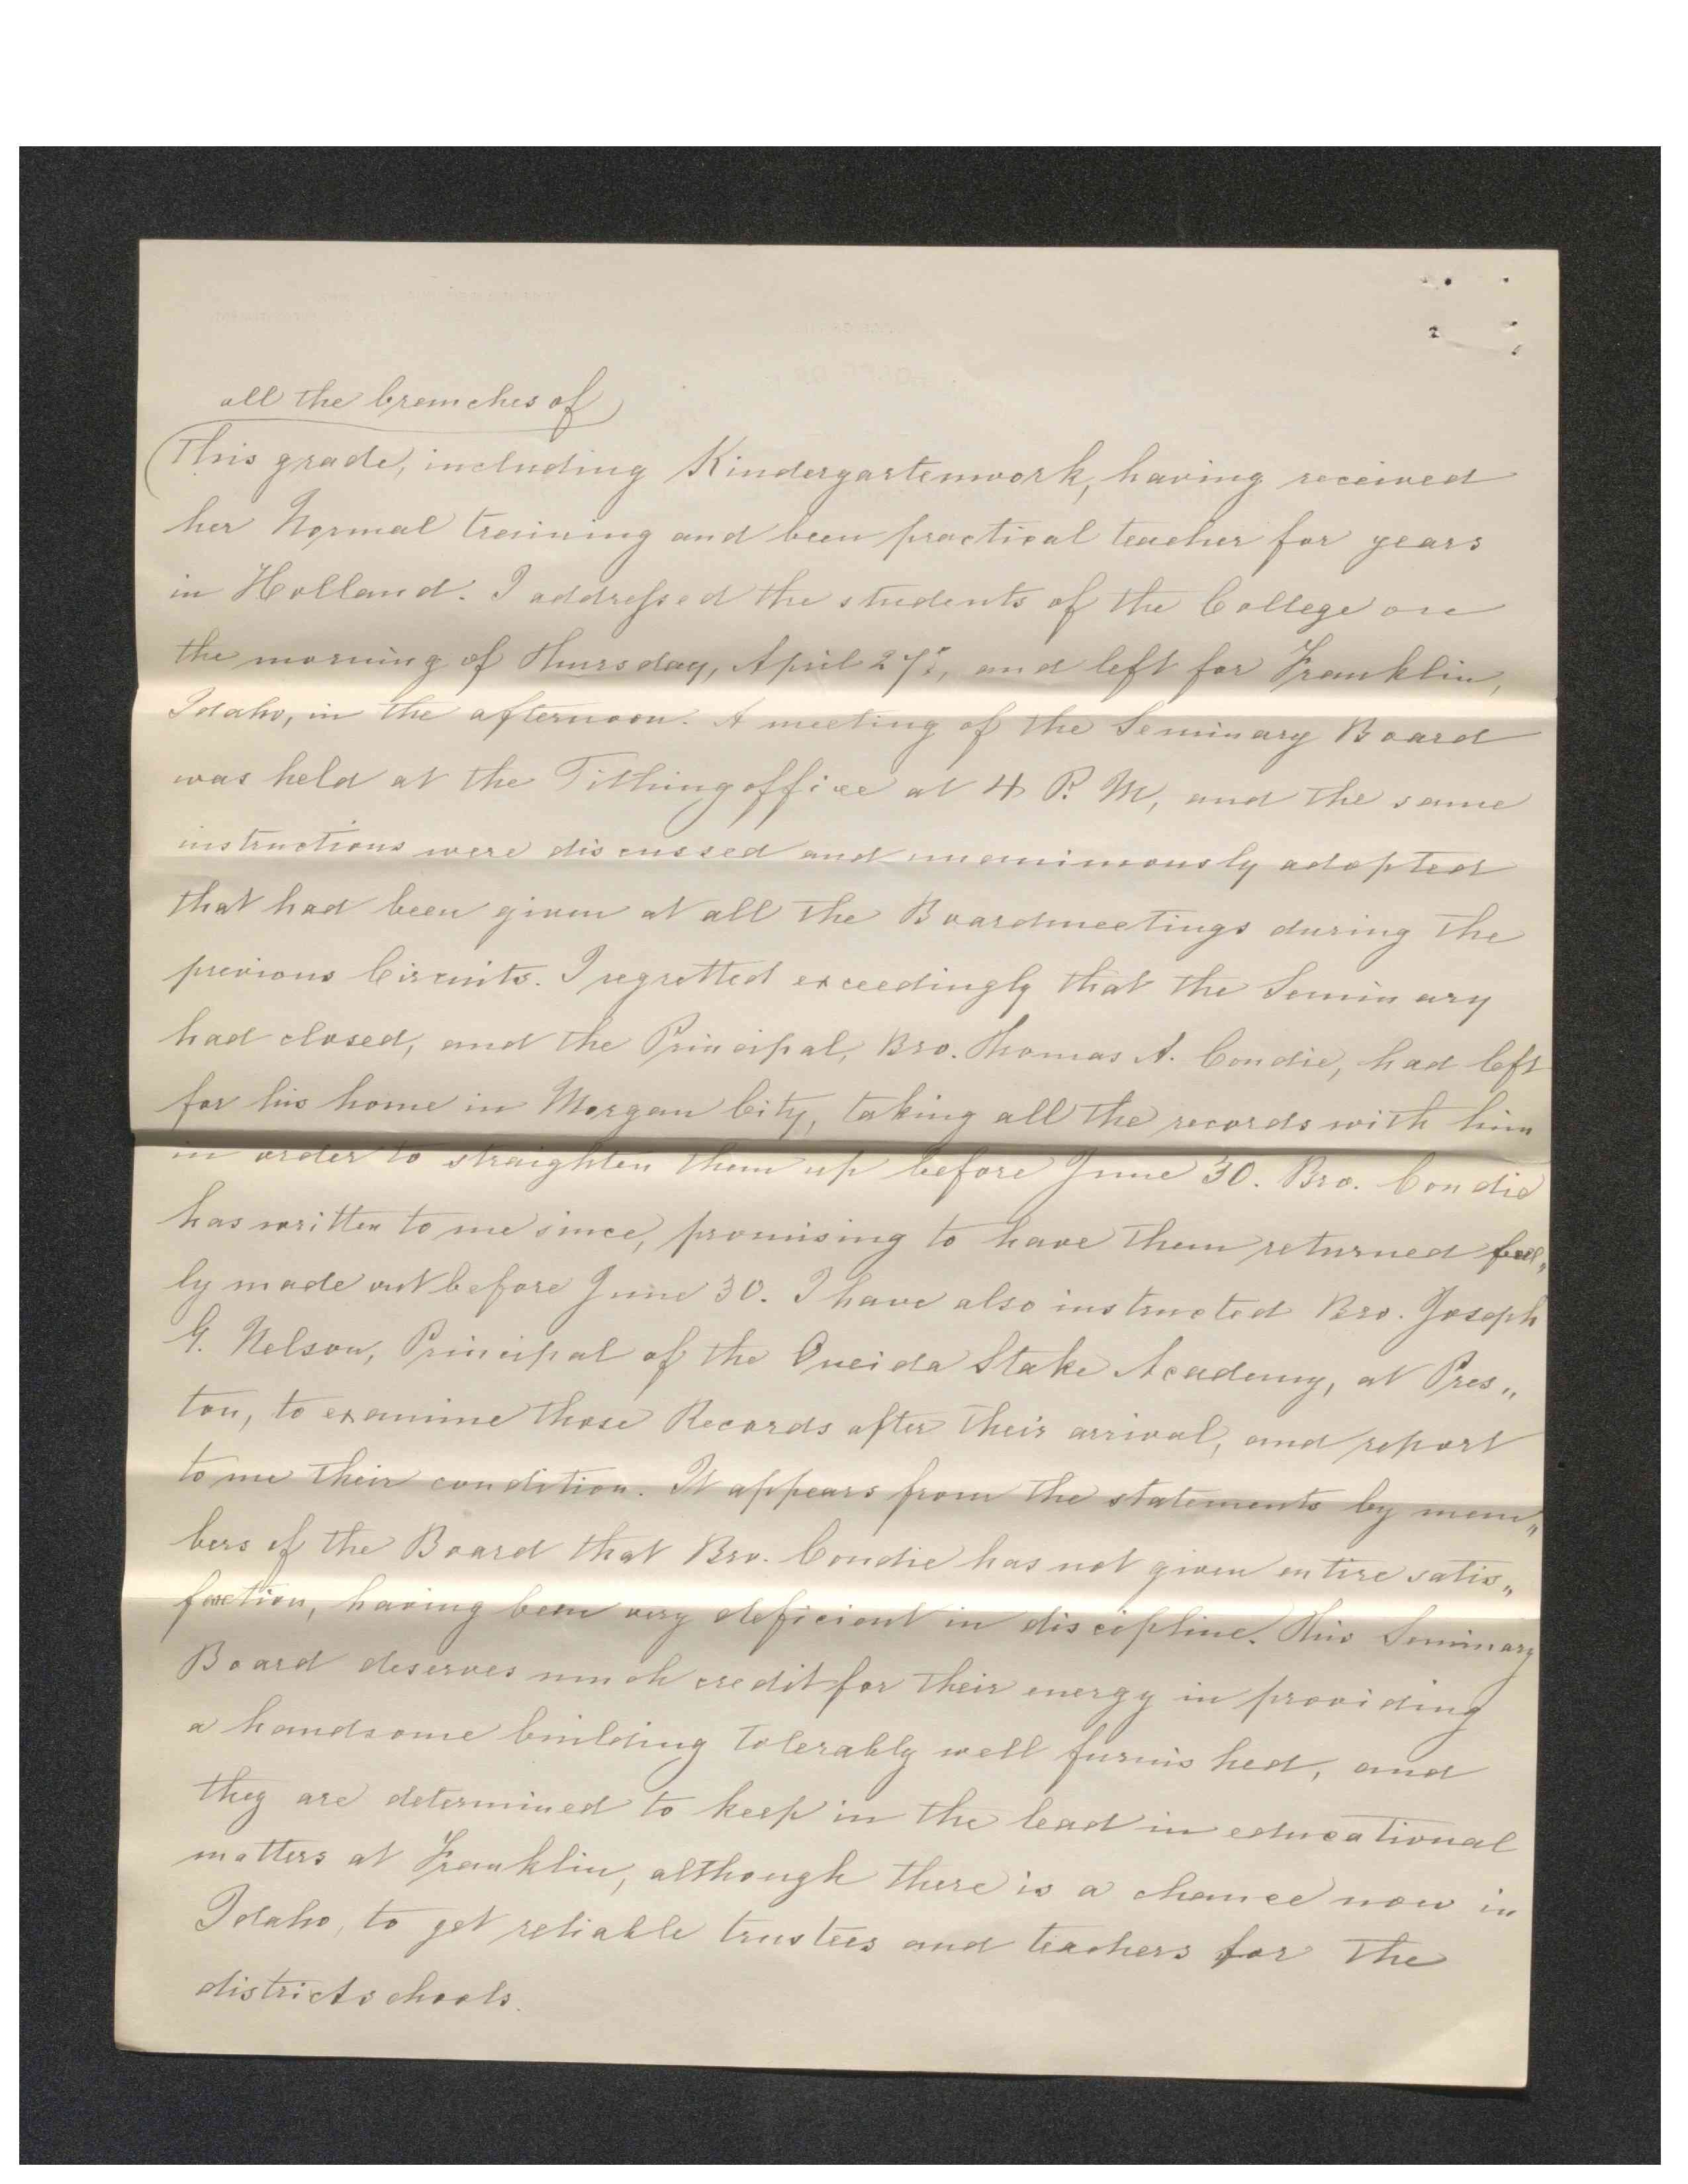 all the branches of
This grade, including Kindergartenwork, having received
her Normal training and been practical teacher for years
in Holland. I addressed the students of the College on
the morning of Thursday, April 27th, and left for Franklin,
Idaho, in the afternoon. A meeting of the Seminary Board
was held at the Tithingoffice at 4 P. M, and the same
instructions were discussed and unanimously adopted
that had been given at all the Boardmeetings during the
previous Circuits. I regretted exceedingly that the Seminary
had closed, and the Principal, Bro. Thomas A. Condie, had left
for his home in Morgan City, taking all the records with him
in order to straighten them up before June 30. Bro. Condie
has written to me since, promising to have them returned ful„
ly made out before June 30. I have also instructed Bro. Joseph
G. Nelson, Principal of the Oneida Stake Academy, at Pres„
ton, to examine those Records after their arrival, and report
to me their condition. It appears from the statements by mem„
bers of the Board that Bro. Condie has not given entire satis„
faction, having been very deficient in discipline. This Seminary
Board deserves much credit for their energy in providing
a handsome building tolerably well furnished, and
they are determined to keep in the lead in educational
matters at Franklin, although there is a chance now in
Idaho, to get reliable trustees and teachers for the
districtschools.